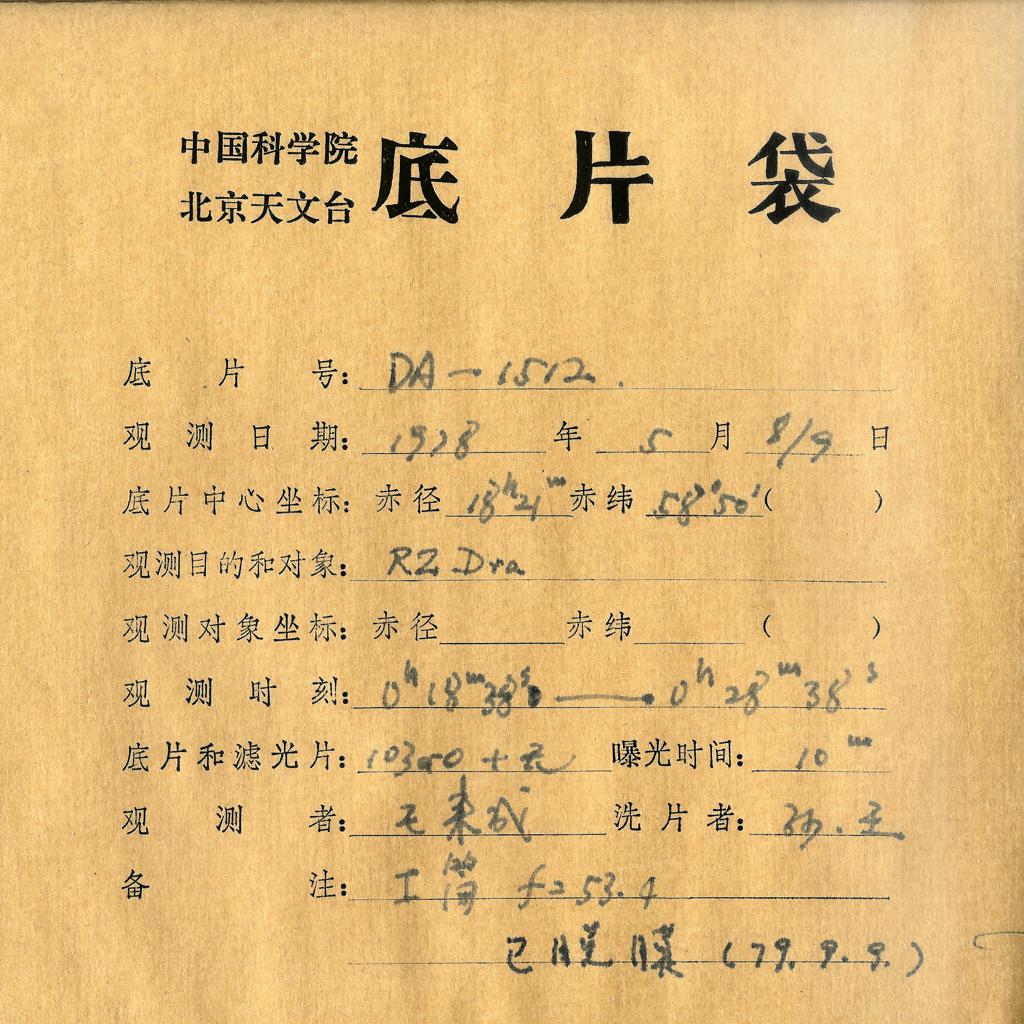 中国科学院
北京天文台 底片袋
底片号: DA-1512.
观测日期: 1978 年 5 月 8/9 日
底片中心坐标: 赤径 18h21m 赤纬 58°50′( )
观测目的和对象: RZ Dra
观测对象坐标: 赤径 赤纬 ( )
观测时刻: 0h18m38s — 0h28m38s
底片和滤光片: 103aO + 无 曝光时间: 10m
观测者: 成 洗片者: 孙.王
备注: I 筒 f=53.4
已脱膜 (79.9.9.)